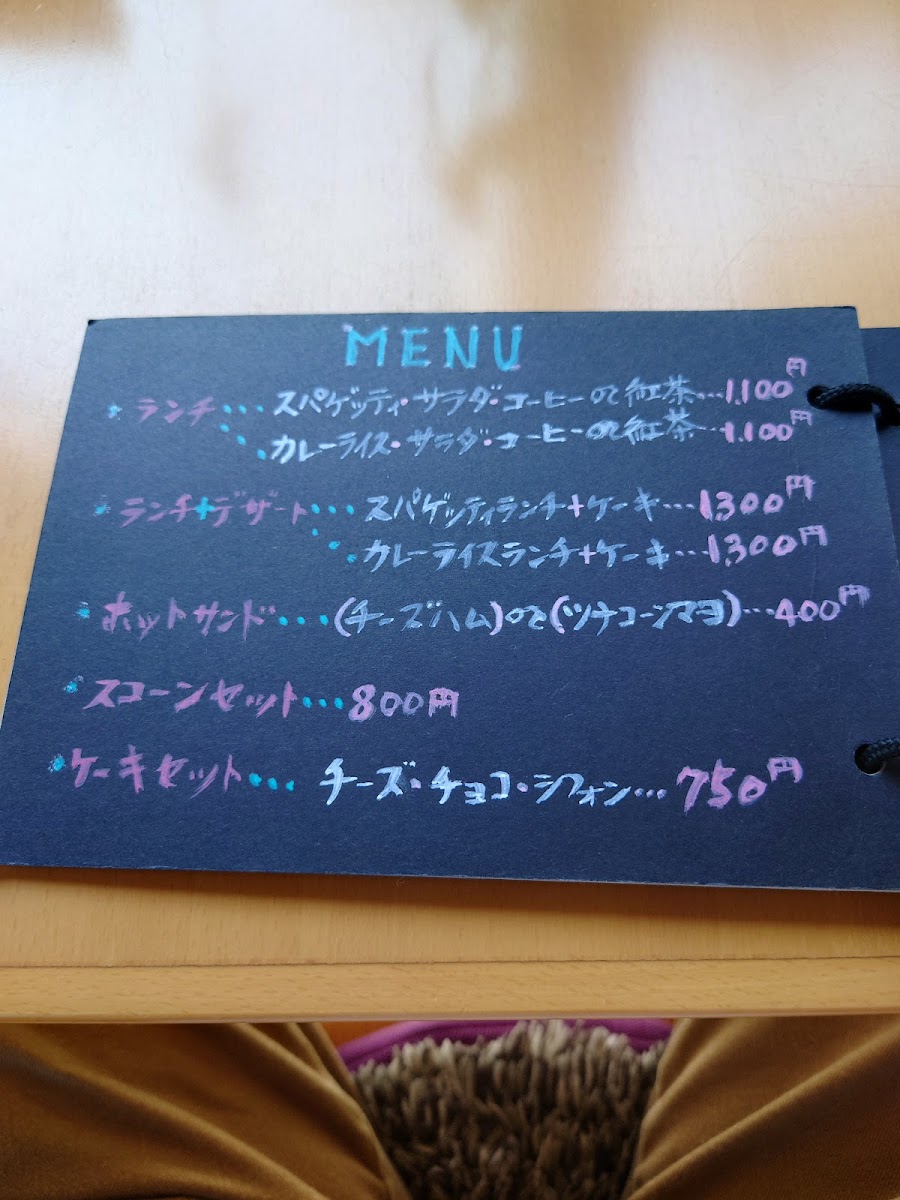 MENU
ランチ・・・スパゲッティ・サラダ・コーヒーor紅茶…1,100円
・・カレーライス・サラダ・コーヒーor紅茶…1,100円
ランチ+デザート・・・スパゲッティランチ+ケーキ…1,300円
・・・カレーライスランチ+ケーキ…1,300円
ホットサンド・・・(チーズハム)or(ツナコーンマヨ)…400円
スコーンセット・・・800円
ケーキセット・・・チーズ・チョコ・シフォン…750円